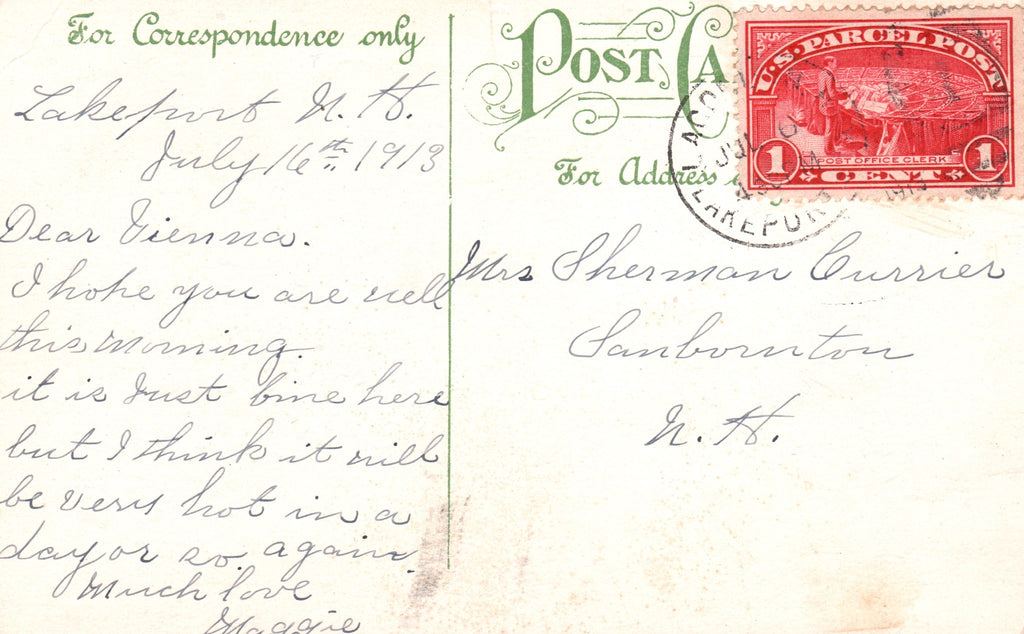 For Correspondence only
POST CA
Lakeport N. H.
July 16th 1913
For Address
U.S. PARCEL POST
1 POST OFFICE CLERK 1
CENT
JUL
LAKEPOR
Dear Vienna.
I hope you are well
this morning.
it is Just bine here
but I think it will
be very hot in a
day or so again.
Much love
Maggie
Mrs Sherman Currier
Sanbornton
N. H.